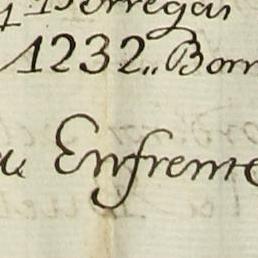 Borregas
1232,, Borr
a Enfrente